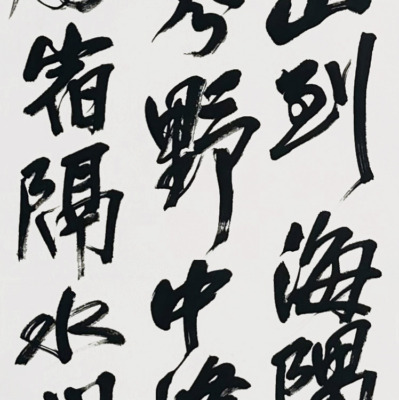 山到海隅
分野中峰
宿隔水